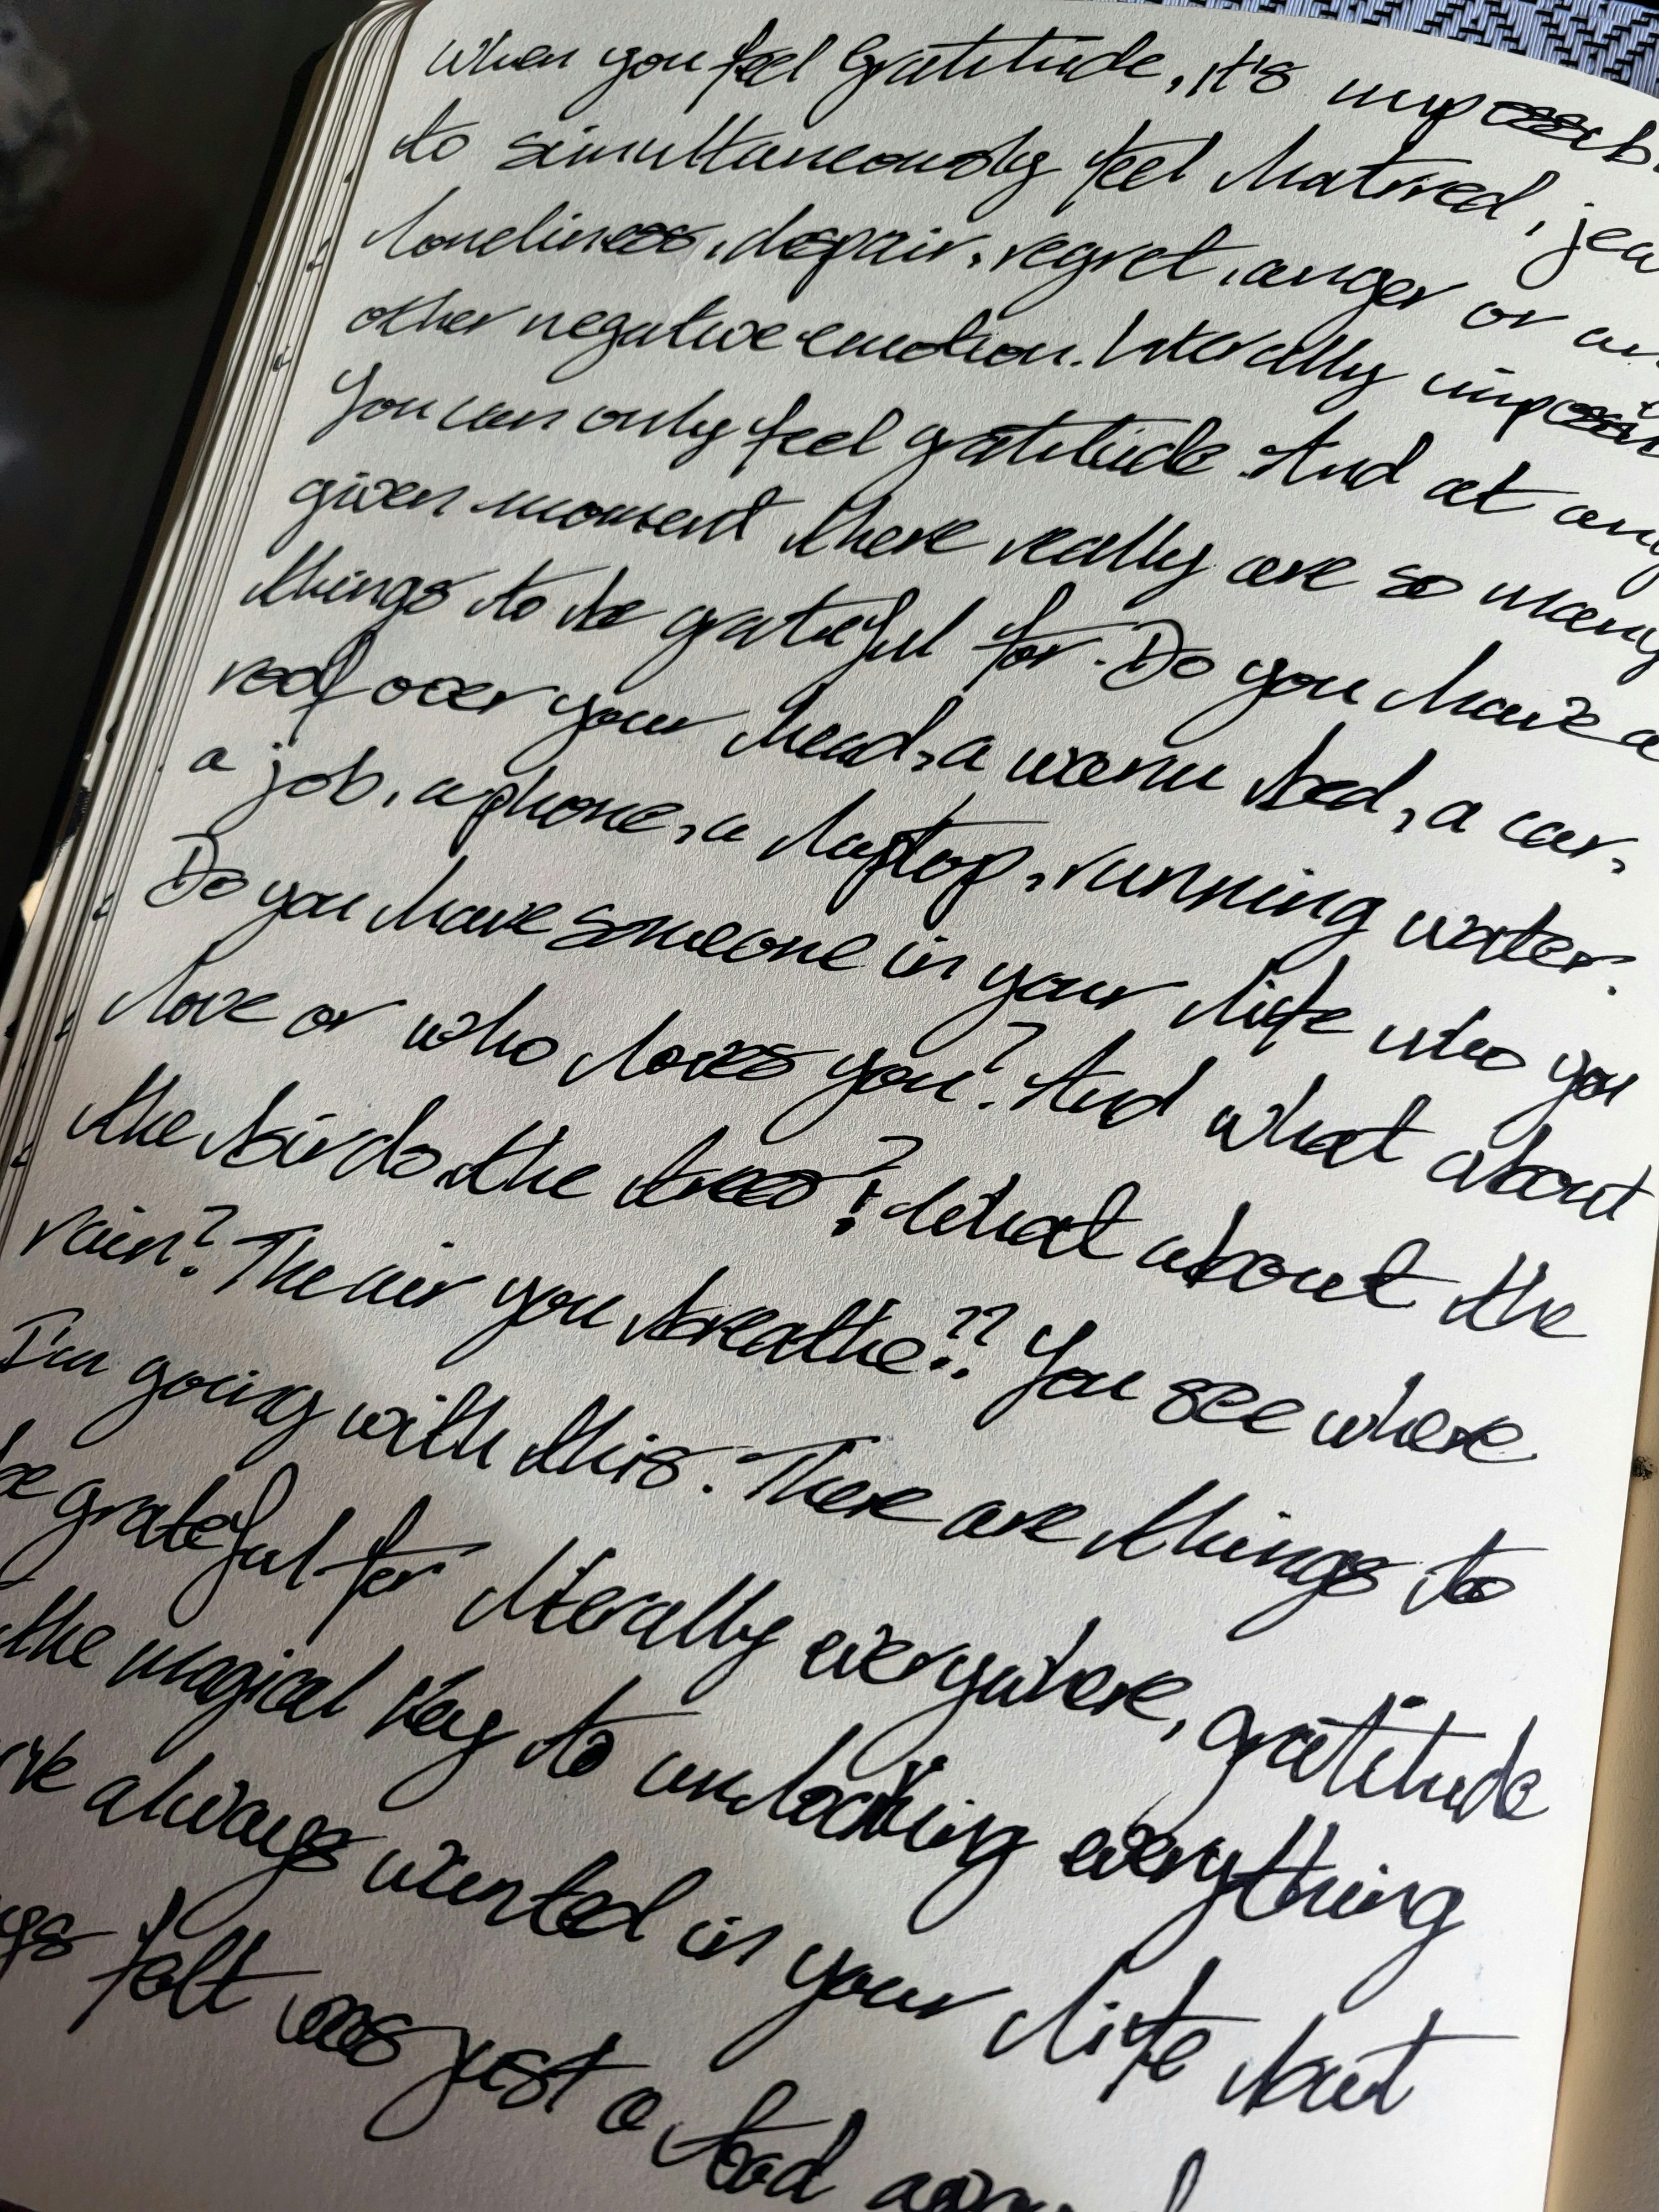 When you feel gratitude, it's impossib
to simultaneously feel hatred, jea
loneliness, despair, regret, anger or an
other negative emotion. Literally impossi
You can only feel gratitude. And at any
given moment there really are so many
things to be grateful for. Do you have a
roof over your head, a warm bed, a car,
a job, a phone, a laptop, running water?
Do you have someone in your life who you
love or who loves you? And what about
the birds, the trees? What about the
rain? The air you breathe?? You see where
I'm going with this. There are things to
be grateful for literally everywhere, gratitude
the magical key to unlocking everything
've always wanted in your life but
ys felt was just a tad